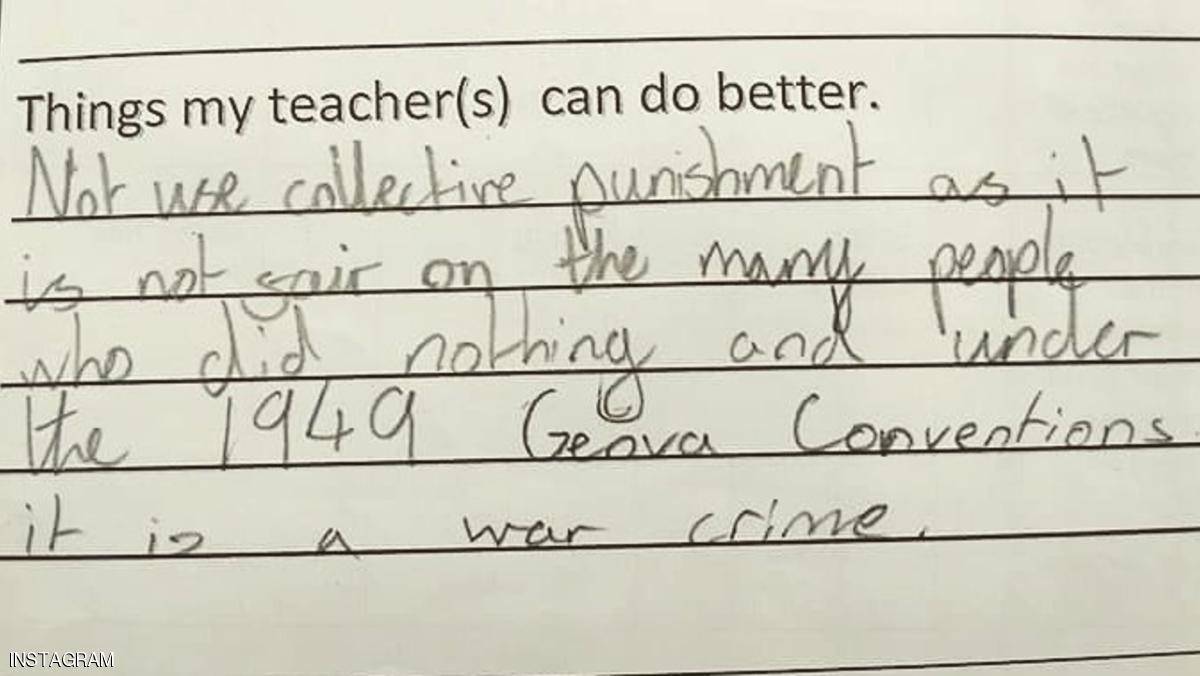 Things my teacher(s) can do better.
Not use collective punishment as it
is not fair on the many people
who did nothing and under
the 1949 Genova Conventions
it is a war crime.
INSTAGRAM